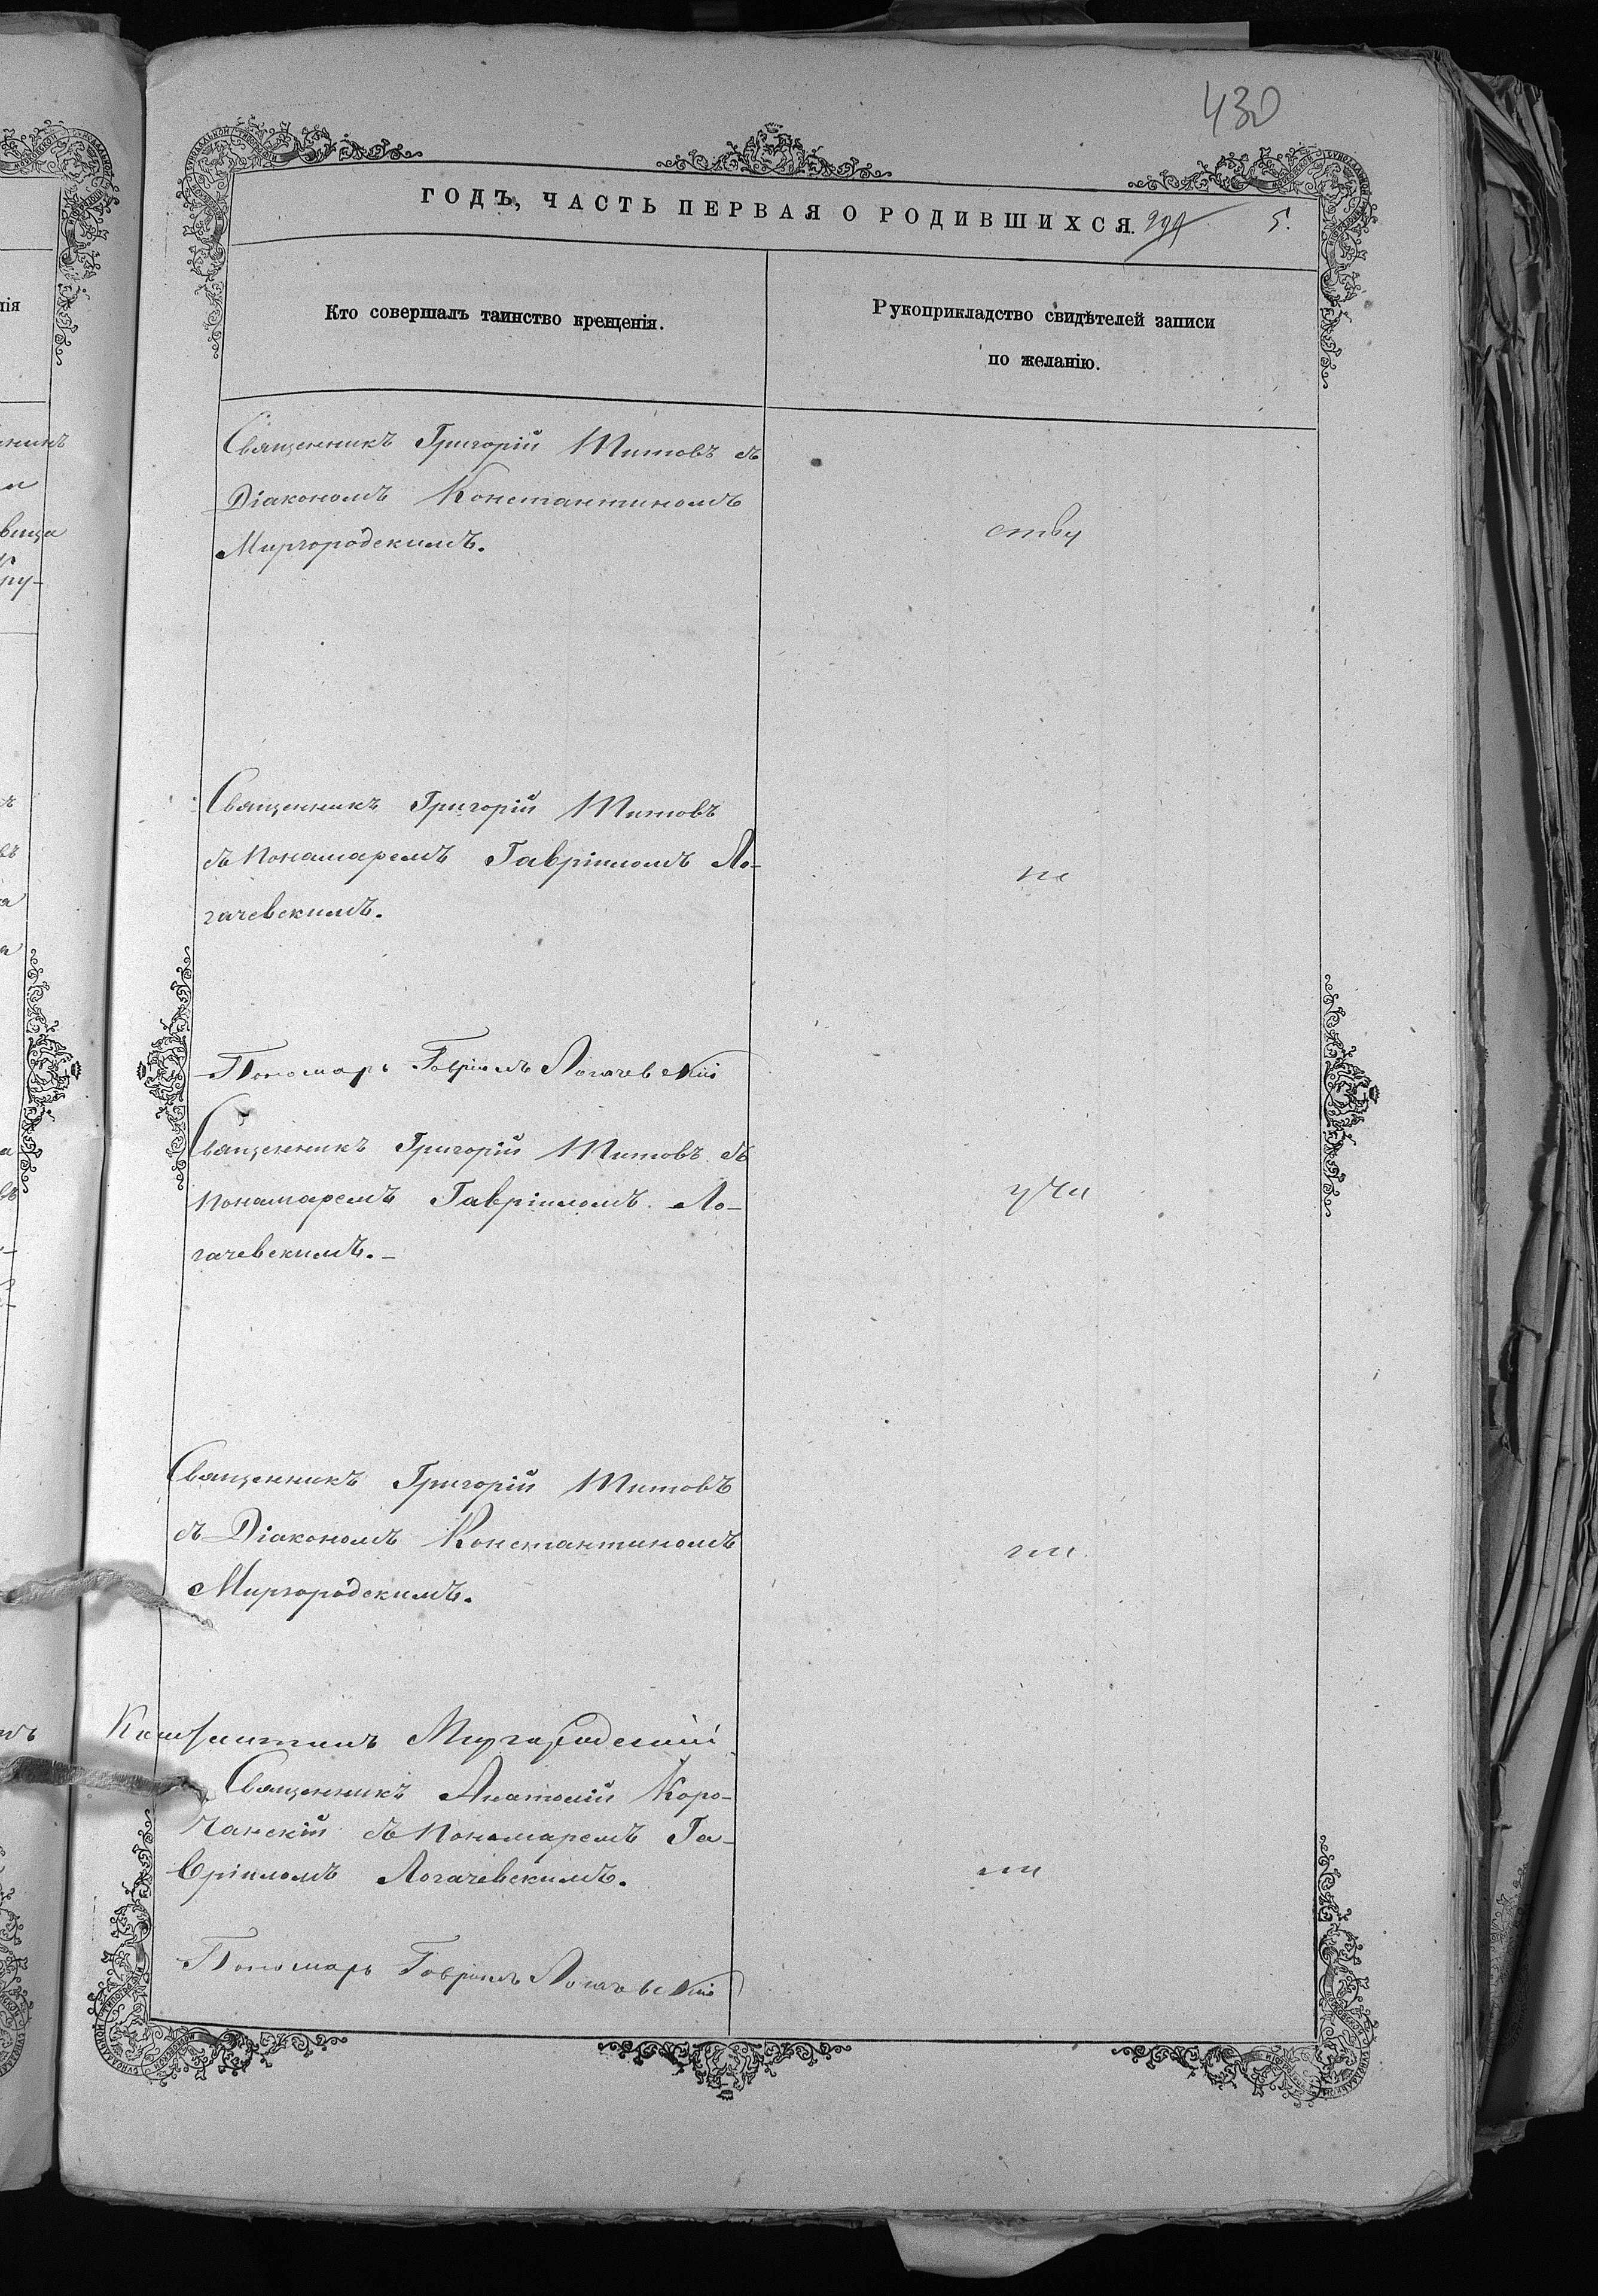 430
ГОДЪ, ЧАСТЬ ПЕРВАЯ О РОДИВШИХСЯ.
5.
Кто совершалъ таинство крещенія.
Рукоприкладство свидѣтелей записи
по желанію.
Священникъ Григорій Титовъ съ
Діакономъ Константиномъ
Миргородскимъ.
ству
Священникъ Григорій Титовъ
съ Понамаремъ Гавріиломъ Ло-
гачевскимъ.
не
Пономарь Гавріилъ Логачевскій
Священникъ Григорій Титовъ съ
Понамаремъ Гавріиломъ Ло-
гачевскимъ.—
уча
Священникъ Григорій Титовъ
съ Діакономъ Константиномъ
Миргородскимъ.
Константинъ Миргородскій
Священникъ Анатолій Коро-
чанскій съ Понамаремъ Га-
вріиломъ Логачевскимъ.
Пономарь Гавріилъ Логачевскій